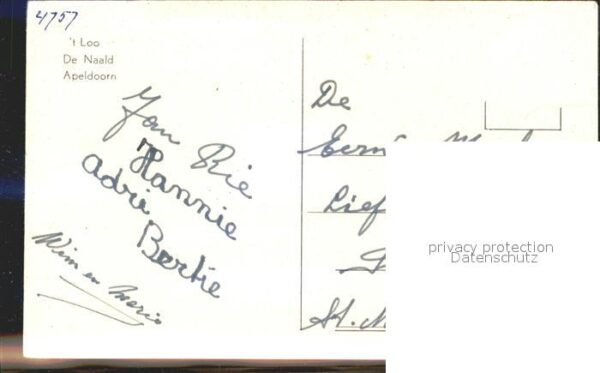 4757
't Loo
De Naald
Apeldoorn
Jan Rie
Hannie
Adri.
Bertie
Wim en Marie
De
Lief
St.
privacy protection
Datenschutz